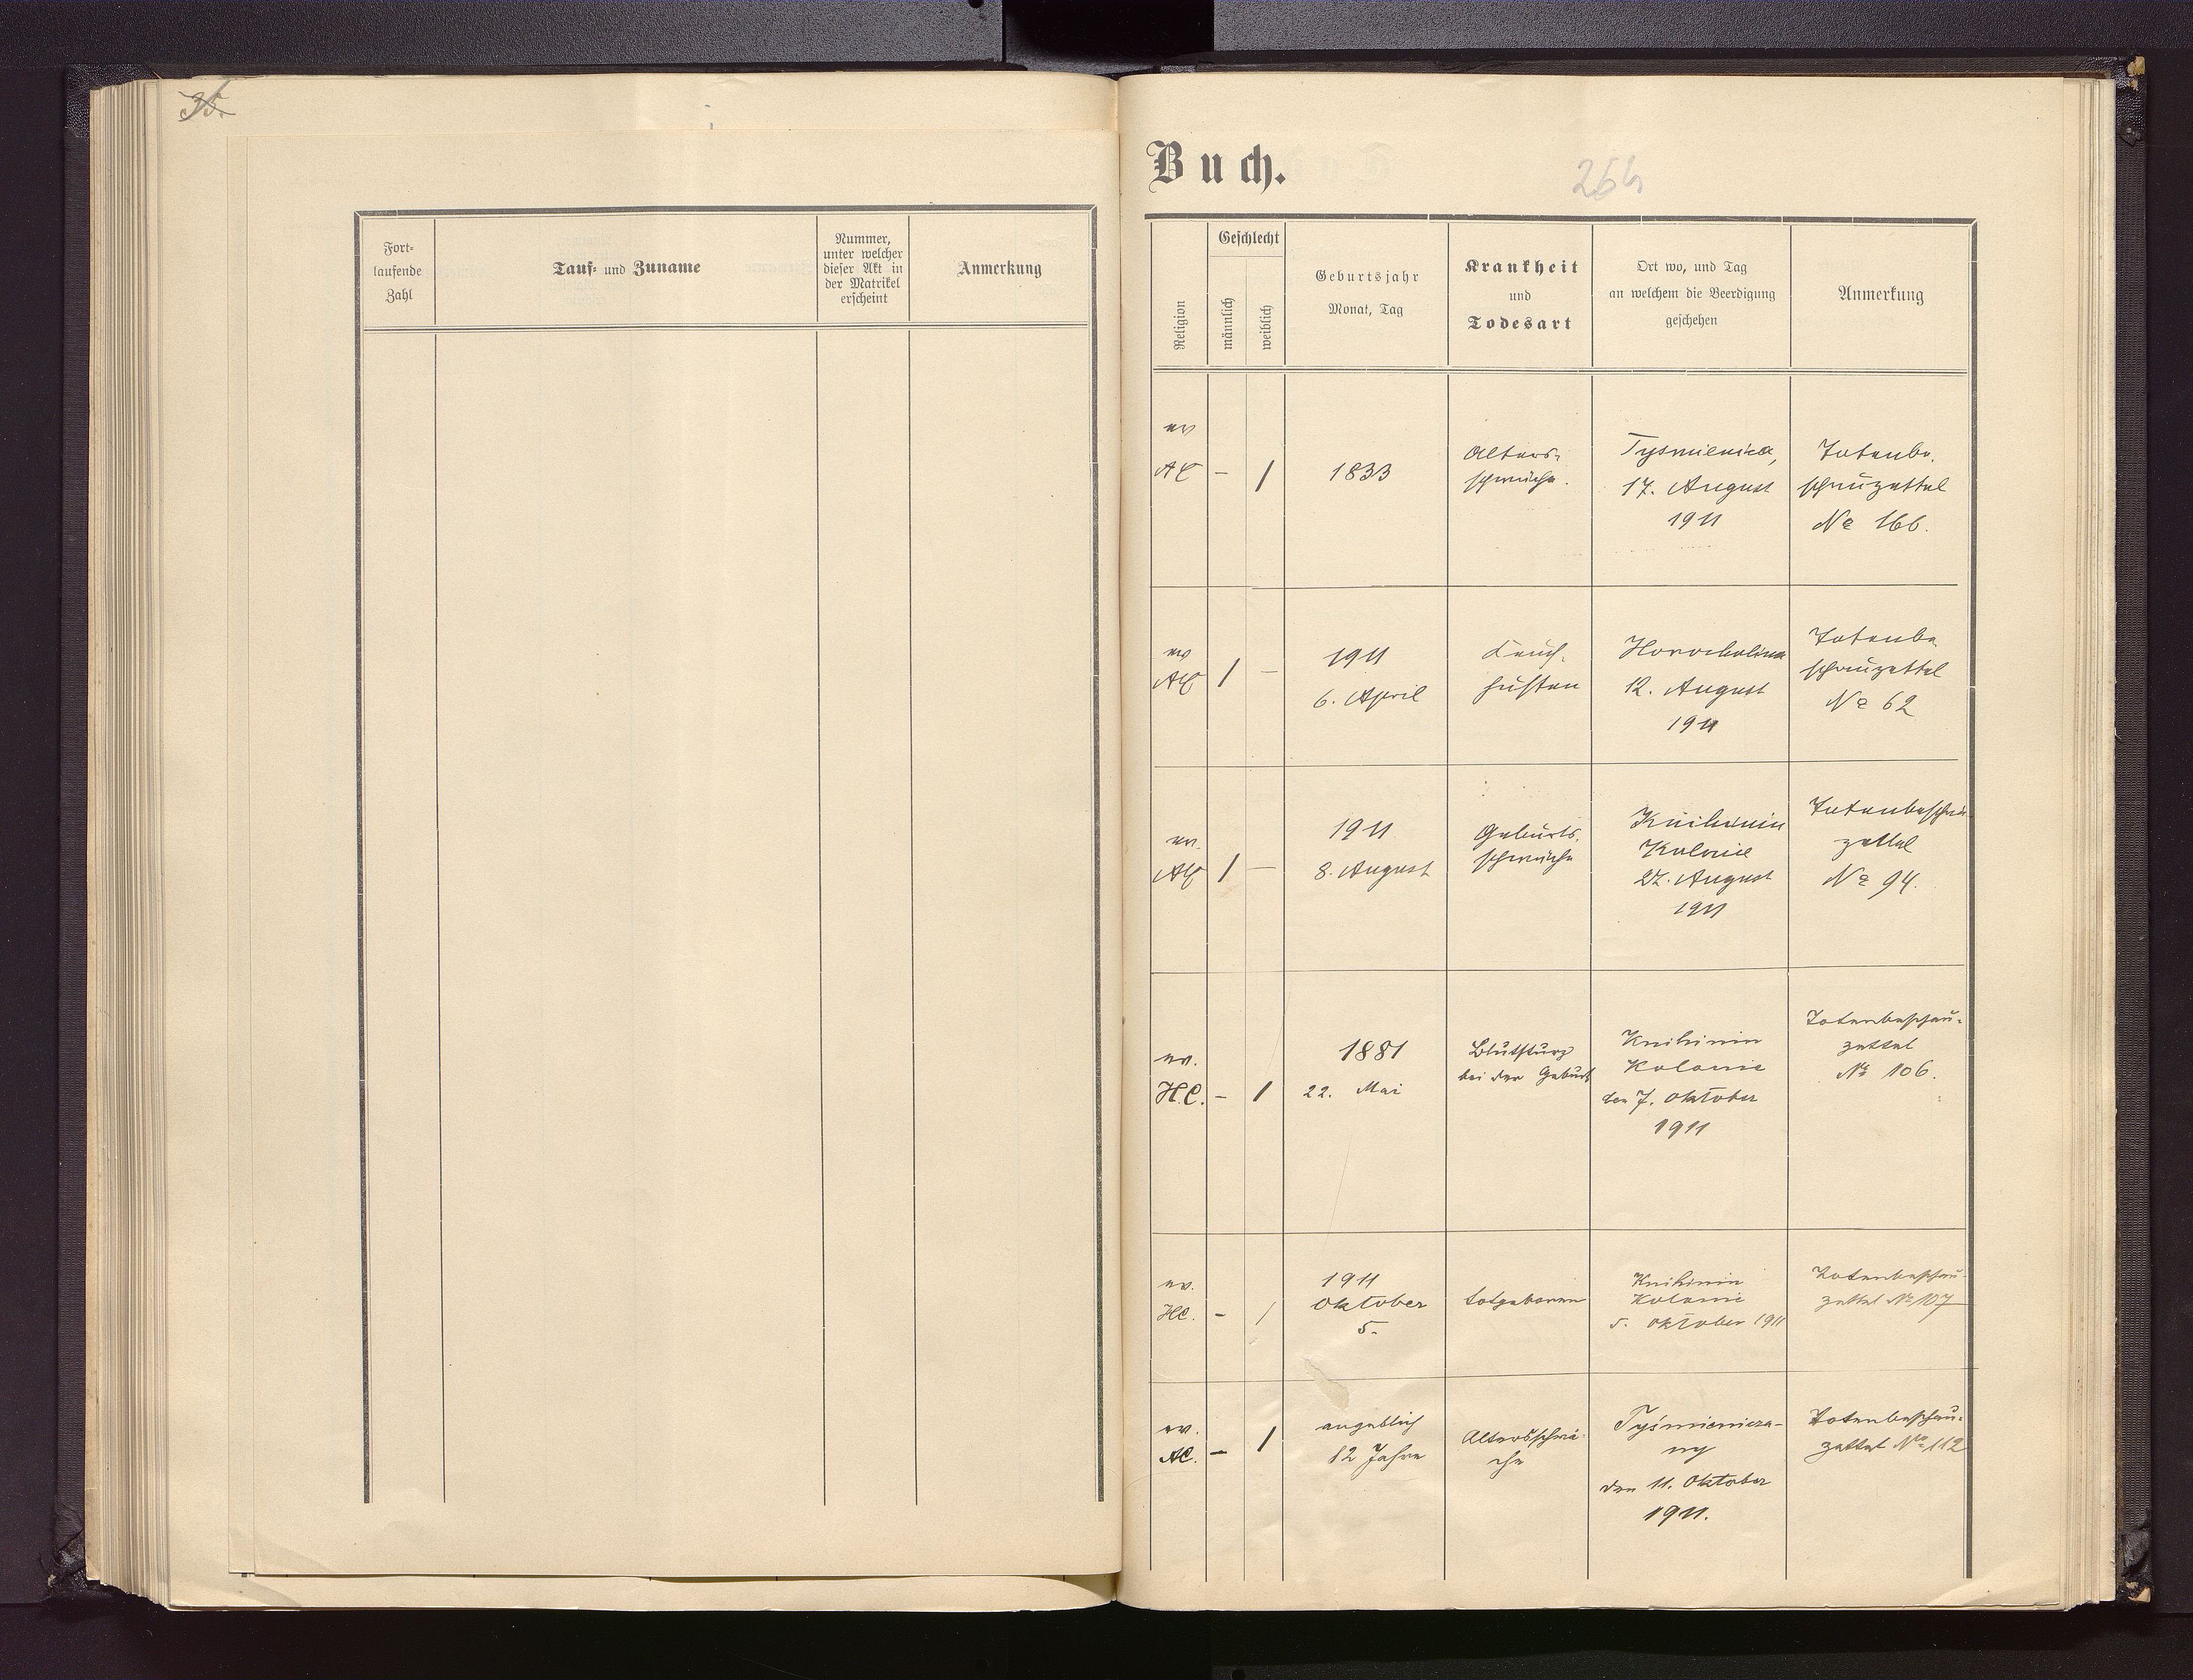 Fort-
laufende
Zahl
Tauf- und Zuname
Nummer,
unter welcher
dieser Akt in
der Matrikel
erscheint
Anmerkung
Buch.
Religion
Geschlecht
männlich
weiblich
Geburtsjahr
Monat, Tag
Krankheit
und
Todesart
Ort wo, und Tag
an welchem die Beerdigung
geschehen
Anmerkung
ev
AC
–
1
1833
Alters-
schwäche.
Tysmienica,
17. August
1911
Totenbe-
schauzettel
No 166.
ev
AC
1
–
1911
6. April
Keuch-
husten
Horocholina
12. August
1911
Totenbe
schauzettel
No 62
ev.
AC
1
–
1911
8. August
Geburts-
schwäche
Knihinin
Kolonie
27. August
1911
Totenbeschau
zettel
No 94.
ev.
H.C.
–
1
1881
22. Mai
Blutsturz
bei der Geburt
Knihinin
Kolonie
den 7. Oktober
1911
Totenbeschau-
zettel
No 106.
ev.
HC.
–
1
1911
Oktober
5.
totgeboren
Knihinin
Kolonie
5. Oktober 1911
Totenbeschau-
zettel No 107
ev.
AC.
–
1
angeblich
82 Jahre
Altersschwä-
che
Tyśmienicza-
ny
den 11. Oktober
1911.
Totenbeschau-
zettel No 112